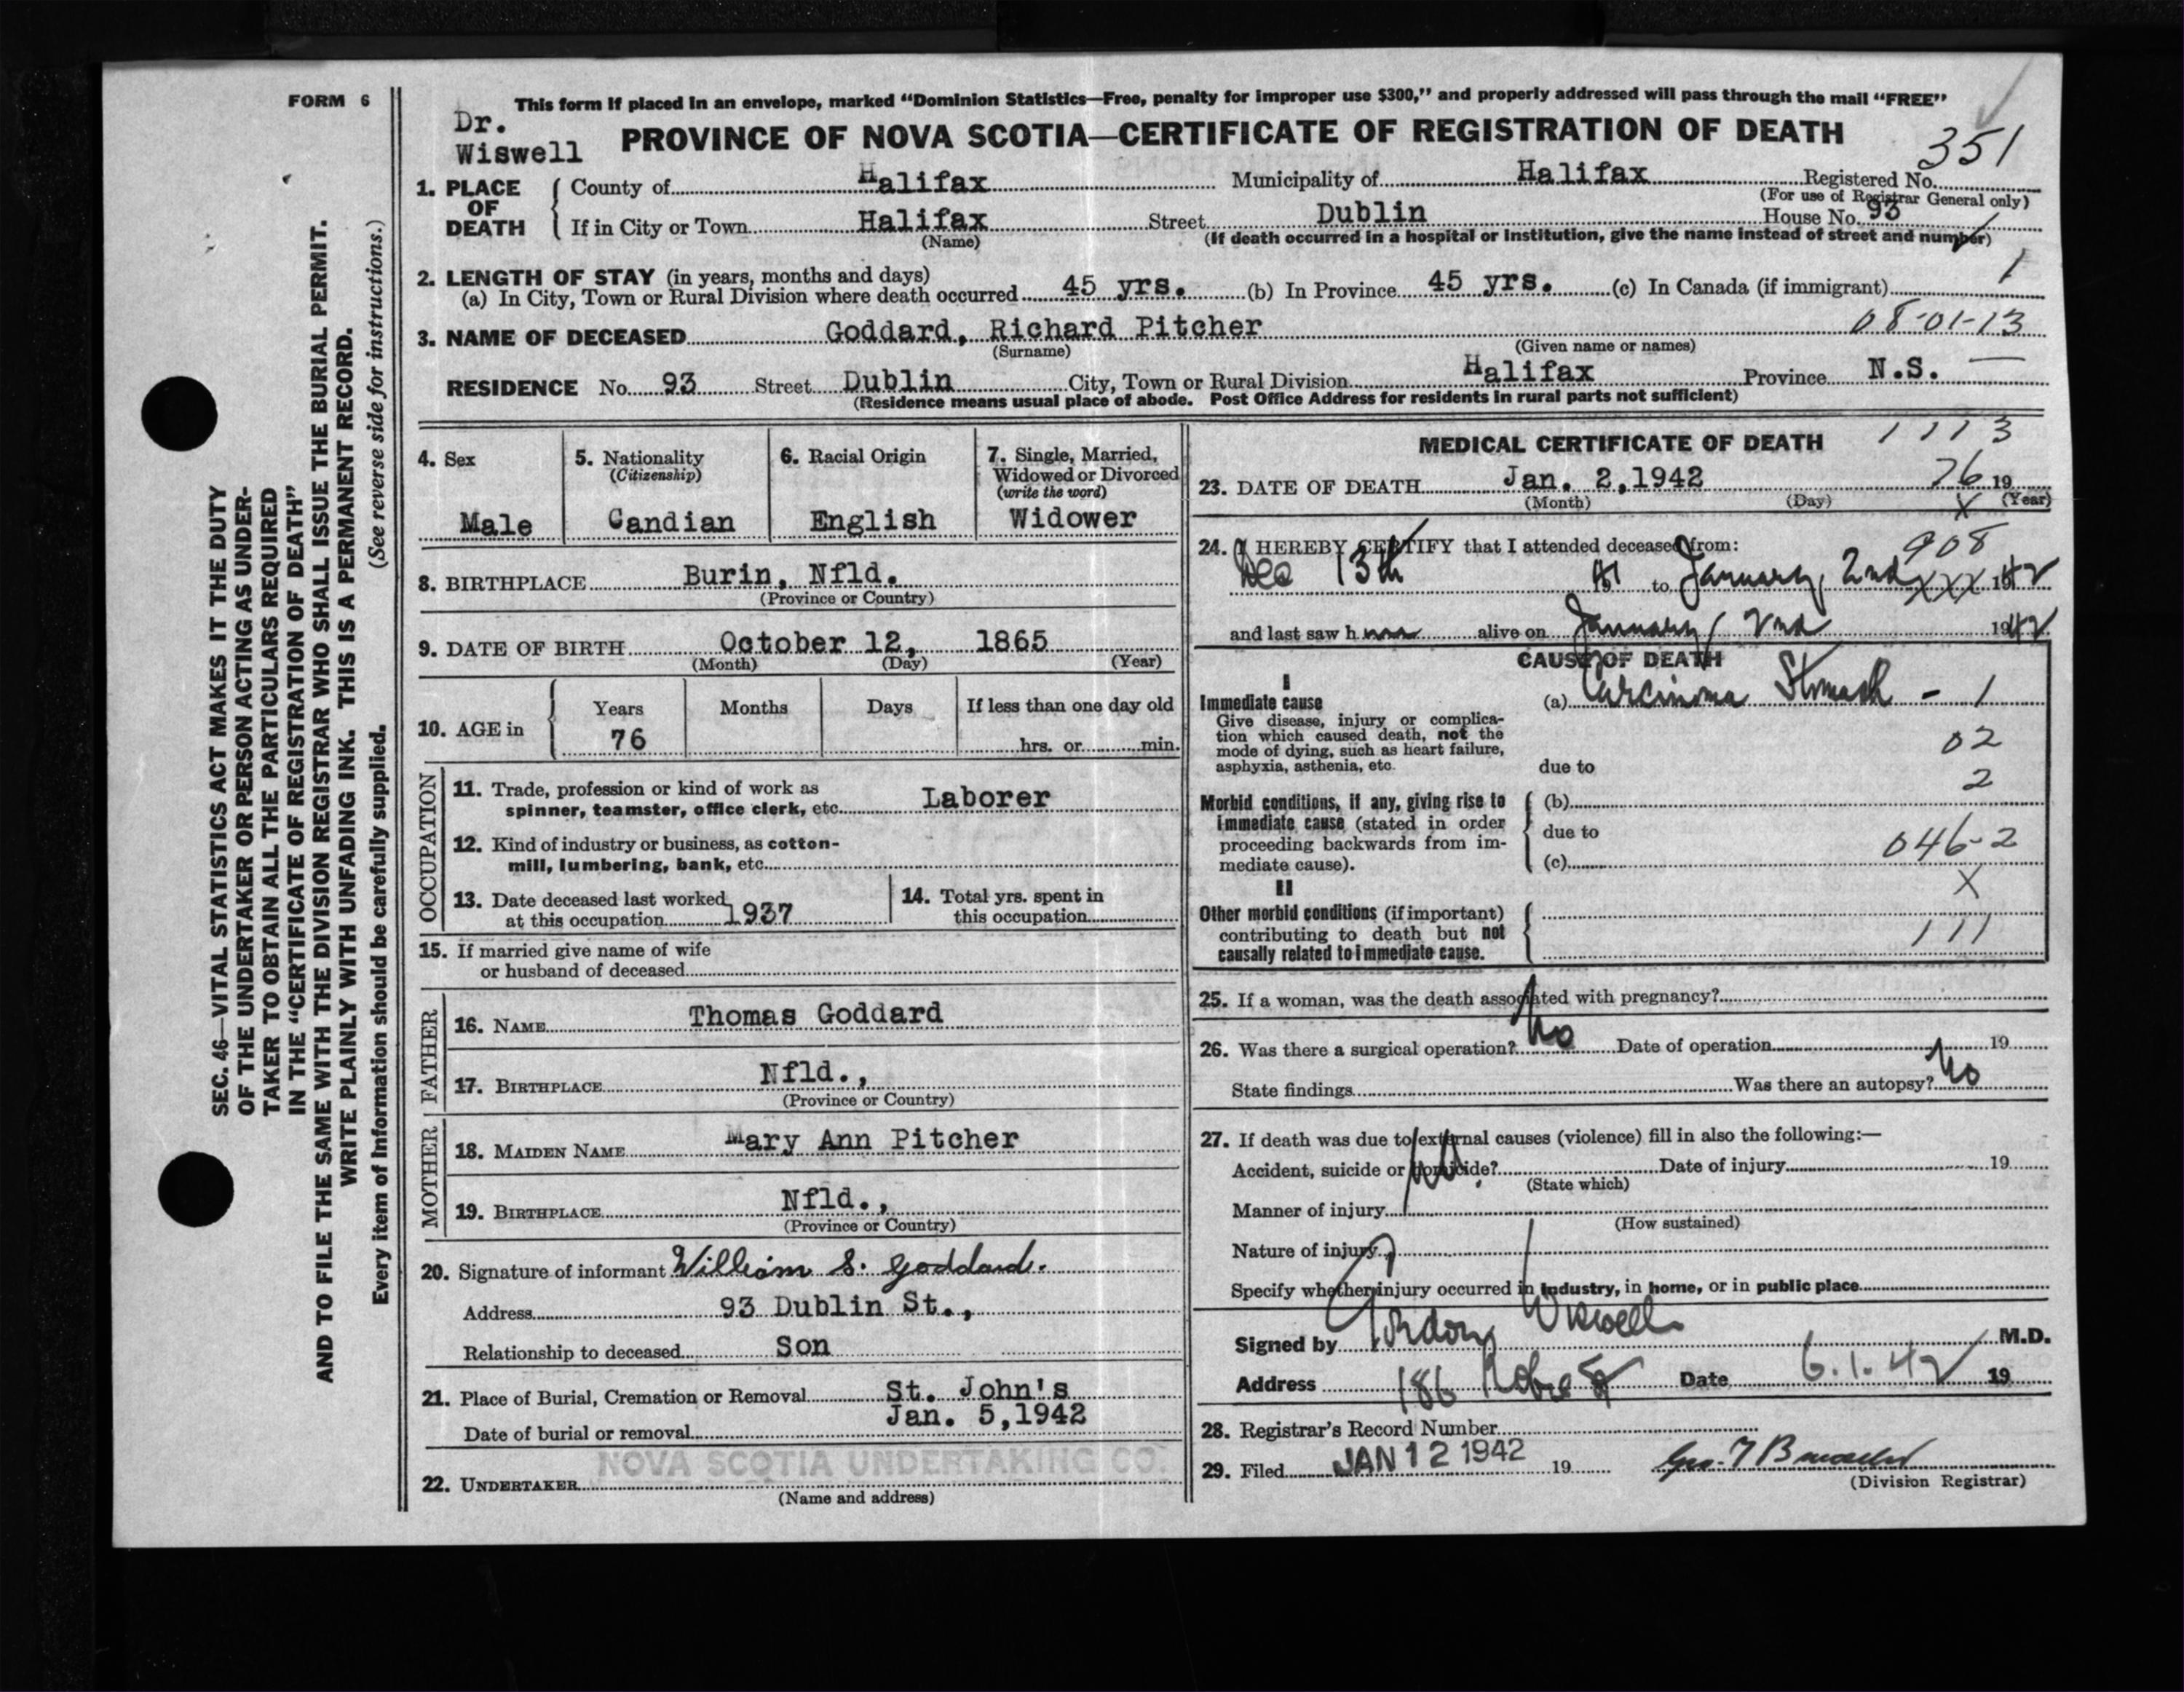 FORM 6
This form if placed in an envelope, marked “Dominion Statistics—Free, penalty for improper use $300,” and properly addressed will pass through the mail “FREE”
Dr.
Wiswell
PROVINCE OF NOVA SCOTIA—CERTIFICATE OF REGISTRATION OF DEATH
351
1. PLACE OF DEATH
County of Halifax Municipality of Halifax Registered No.
(For use of Registrar General only)
If in City or Town Halifax Street Dublin House No. 93
(Name) (If death occurred in a hospital or institution, give the name instead of street and number)
2. LENGTH OF STAY (in years, months and days)
(a) In City, Town or Rural Division where death occurred 45 yrs. (b) In Province 45 yrs. (c) In Canada (if immigrant) 1
3. NAME OF DECEASED Goddard, Richard Pitcher 08-01-13
(Surname) (Given name or names)
RESIDENCE No. 93 Street Dublin City, Town or Rural Division Halifax Province N.S. —
(Residence means usual place of abode. Post Office Address for residents in rural parts not sufficient)
4. Sex
Male
5. Nationality
(Citizenship)
Candian
6. Racial Origin
English
7. Single, Married,
Widowed or Divorced
(write the word)
Widower
8. BIRTHPLACE Burin, Nfld.
(Province or Country)
9. DATE OF BIRTH October 12, 1865
(Month) (Day) (Year)
10. AGE in
Years Months Days If less than one day old
76 hrs. or min.
OCCUPATION
11. Trade, profession or kind of work as
spinner, teamster, office clerk, etc. Laborer
12. Kind of industry or business, as cotton-
mill, lumbering, bank, etc.
13. Date deceased last worked
at this occupation 1937
14. Total yrs. spent in
this occupation
15. If married give name of wife
or husband of deceased
FATHER
16. NAME Thomas Goddard
17. BIRTHPLACE Nfld.,
(Province or Country)
MOTHER
18. MAIDEN NAME Mary Ann Pitcher
19. BIRTHPLACE Nfld.,
(Province or Country)
20. Signature of informant William S. Goddard.
Address 93 Dublin St.,
Relationship to deceased Son
21. Place of Burial, Cremation or Removal St. John's
Date of burial or removal Jan. 5,1942
NOVA SCOTIA UNDERTAKING CO.
22. UNDERTAKER
(Name and address)
MEDICAL CERTIFICATE OF DEATH 1113
23. DATE OF DEATH Jan. 2,1942 76 19
(Month) (Day) X (Year)
24. I HEREBY CERTIFY that I attended deceased from: 908
Dec 13th 41 to January, 2nd XXX 1942
and last saw h alive on January 2nd 1942
CAUSE OF DEATH
I
Immediate cause
Give disease, injury or complica-
tion which caused death, not the
mode of dying, such as heart failure,
asphyxia, asthenia, etc.
(a) Carcinoma Stomach - 1
02
due to
2
Morbid conditions, if any, giving rise to
immediate cause (stated in order
proceeding backwards from im-
mediate cause).
(b)
due to
046-2
(c)
X
II
Other morbid conditions (if important)
contributing to death but not
causally related to immediate cause.
111
25. If a woman, was the death associated with pregnancy?
26. Was there a surgical operation? No Date of operation 19
State findings Was there an autopsy? No
27. If death was due to external causes (violence) fill in also the following:—
Accident, suicide or homicide? No. Date of injury 19
(State which)
Manner of injury
(How sustained)
Nature of injury
Specify whether injury occurred in industry, in home, or in public place
Signed by Gordon Wiswell M.D.
Address 186 Date 6.1.42 19
28. Registrar's Record Number
29. Filed JAN 12 1942 19
(Division Registrar)
SEC. 46—VITAL STATISTICS ACT MAKES IT THE DUTY
OF THE UNDERTAKER OR PERSON ACTING AS UNDER-
TAKER TO OBTAIN ALL THE PARTICULARS REQUIRED
IN THE “CERTIFICATE OF REGISTRATION OF DEATH”
AND TO FILE THE SAME WITH THE DIVISION REGISTRAR WHO SHALL ISSUE THE BURIAL PERMIT.
WRITE PLAINLY WITH UNFADING INK. THIS IS A PERMANENT RECORD.
Every item of information should be carefully supplied. (See reverse side for instructions.)